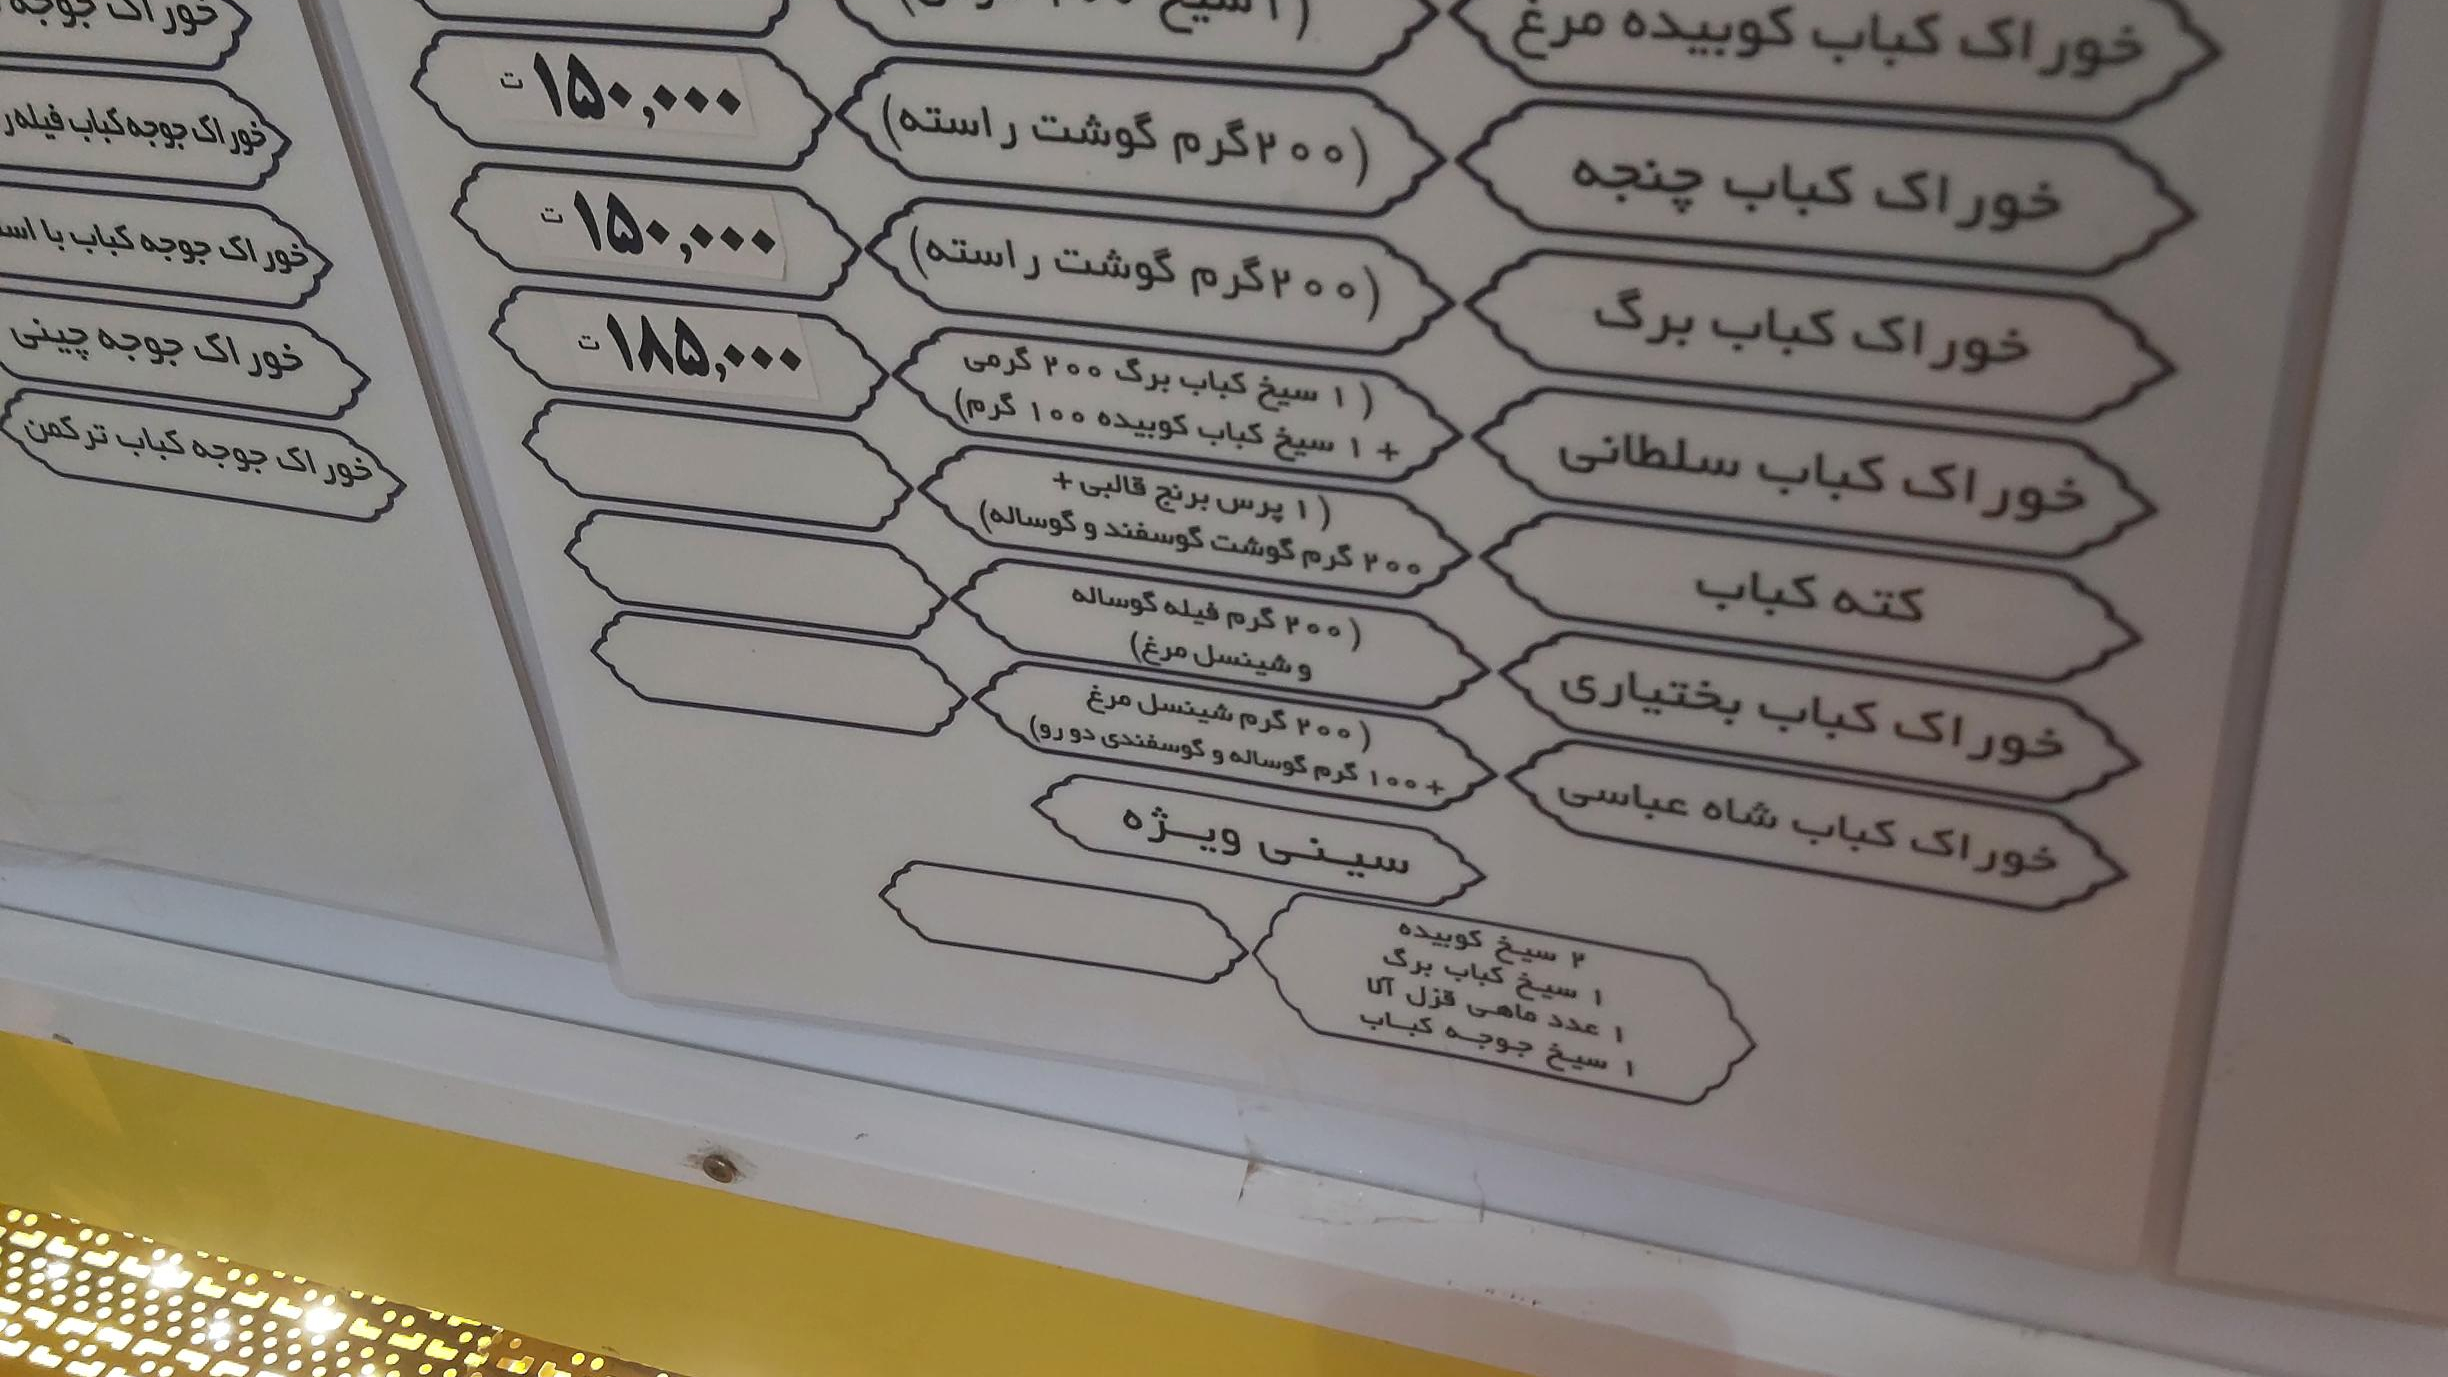 خوراک کباب کوبیده مرغ
خوراک کباب چنجه
(۲۰۰گرم گوشت راسته)
۱۵۰,۰۰۰ ت
خوراک کباب برگ
(۲۰۰گرم گوشت راسته)
۱۵۰,۰۰۰ ت
خوراک کباب سلطانی
(۱ سیخ کباب برگ ۲۰۰ گرمی
+ ۱ سیخ کباب کوبیده ۱۰۰ گرم)
۱۸۵,۰۰۰ ت
کته کباب
(۱ پرس برنج قالبی+
۲۰۰ گرم گوشت گوسفند و گوساله)
خوراک کباب بختیاری
(۲۰۰ گرم فیله گوساله
و شینسل مرغ)
خوراک کباب شاه عباسی
(۲۰۰ گرم شینسل مرغ
+۱۰۰ گرم گوساله و گوسفندی دو رو)
سینی ویژه
۲ سیخ کوبیده
۱ سیخ کباب برگ
۱ عدد ماهی قزل آلا
۱ سیخ جوجه کباب
خوراک جوجه
خوراک جوجه کباب
خوراک جوجه کباب با
خوراک جوجه چینی
خوراک جوجه کباب ترکمن